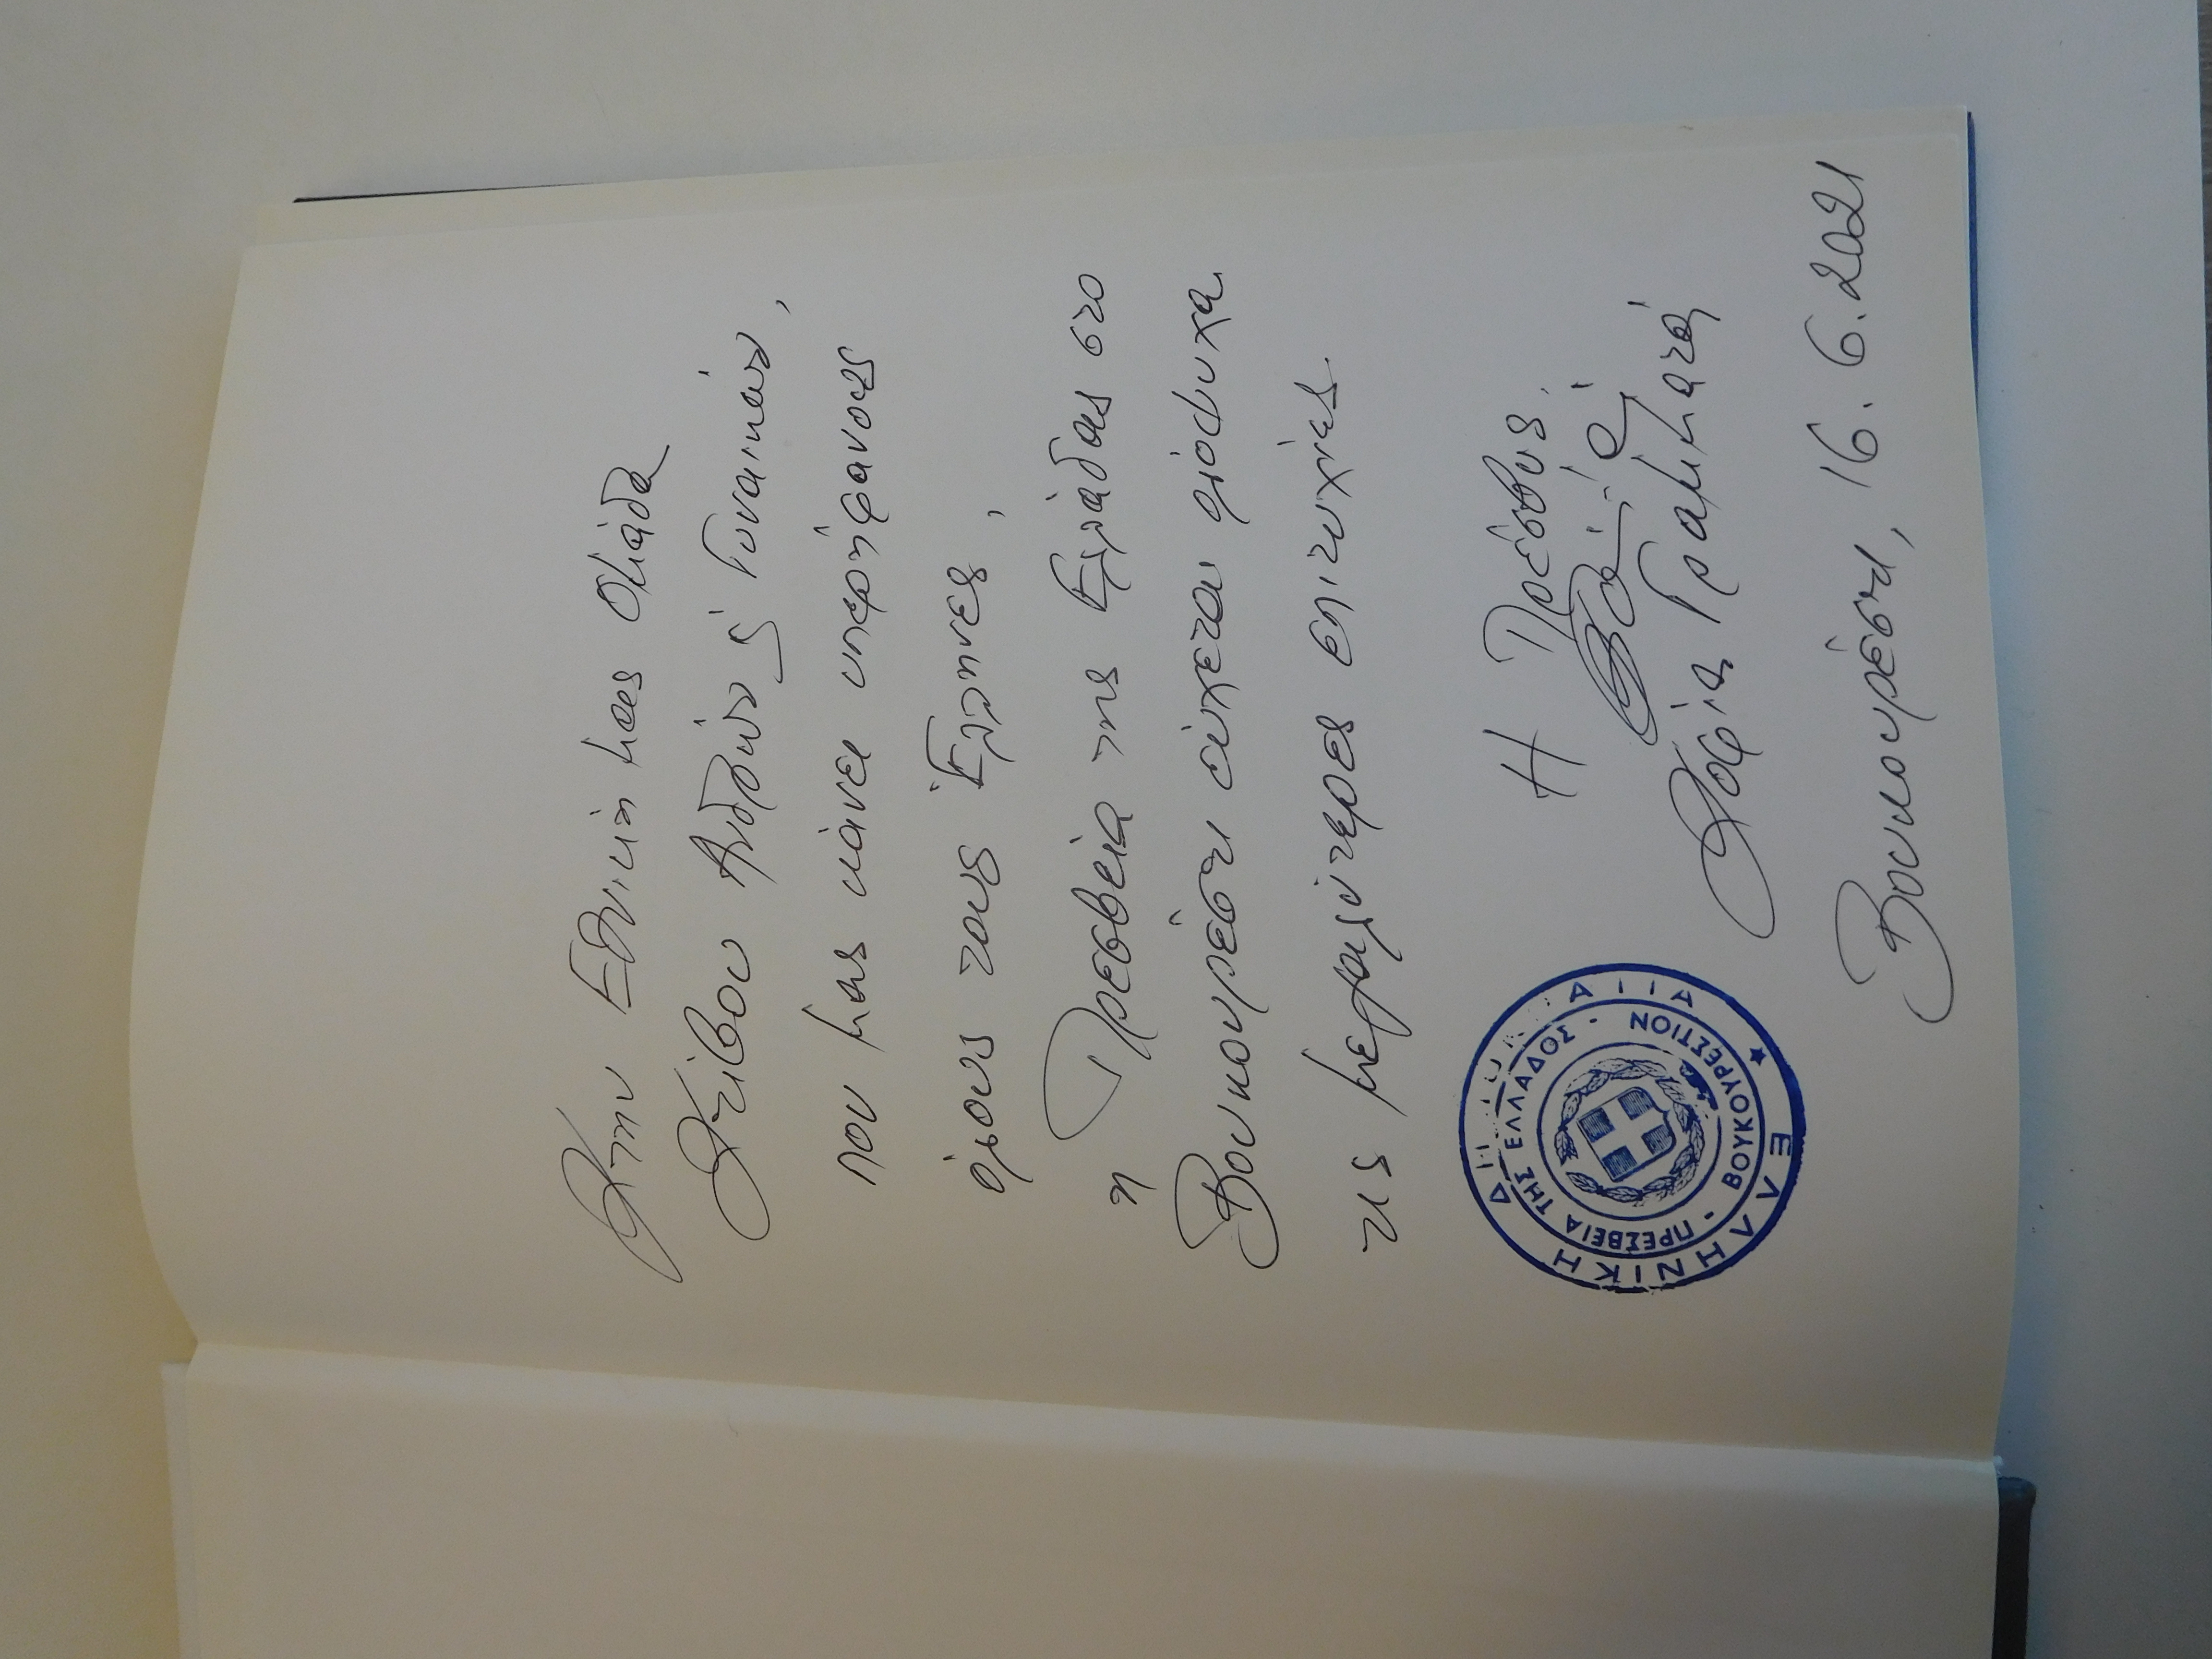 Στην Εθνική μας Ομάδα
Στίβου Ανδρών & Γυναικών,
που μας κάνει υπερήφανους
όλους τους Έλληνες,
η Πρεσβεία της Ελλάδας στο
Βουκουρέστι εύχεται ολόψυχα
τις μεγαλύτερες επιτυχίες.
Η Πρέσβυς,
Σοφία Γραμματά
Βουκουρέστι, 16.6.2021
ΕΛΛΗΝΙΚΗ ΔΗΜΟΚΡΑΤΙΑ
ΠΡΕΣΒΕΙΑ ΤΗΣ ΕΛΛΑΔΟΣ - ΒΟΥΚΟΥΡΕΣΤΙΟΝ